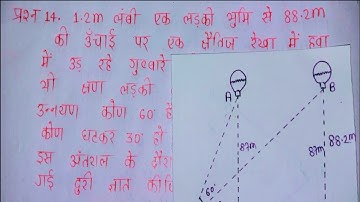 प्रश्न 14. 1.2m लंबी एक लड़की भूमि से 88.2m
की ऊँचाई पर एक क्षैतिज रेखा में हवा
में उड़ रहे गुब्बारे
क्षण लड़की
उन्नयण कोण 60°
कोण घटकर 30° हो
इस अंतराल के
गई दुरी ज्ञात
A
B
87m
87m
88.2m
60°